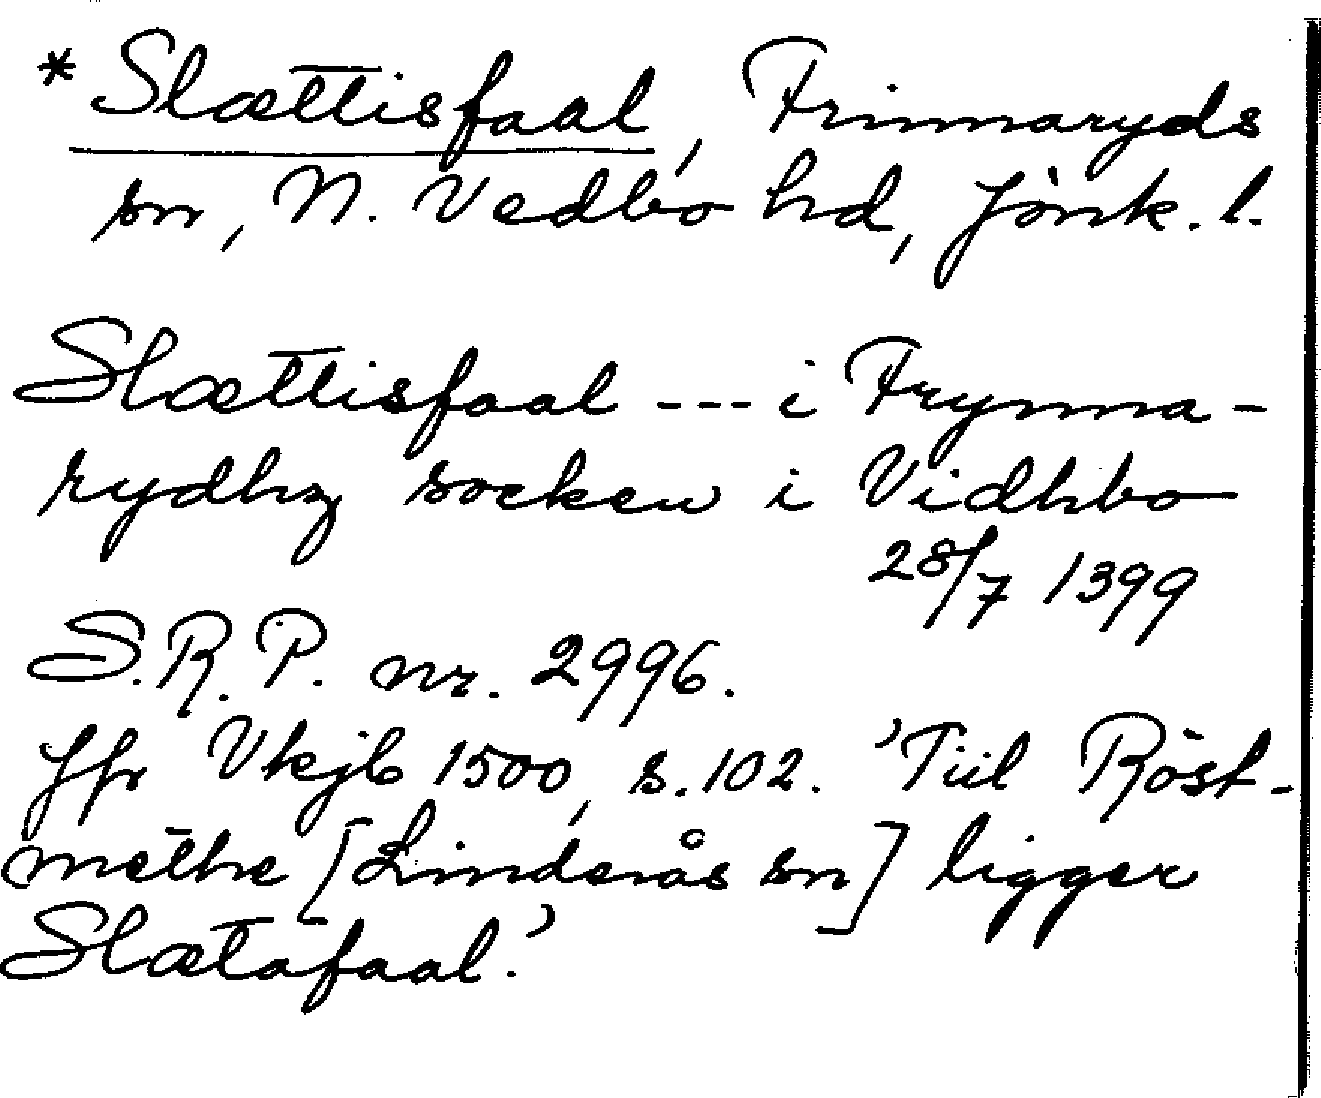 * Slættisfaal, Frinnaryds
sn, N. Vedbo hd, Jönk. l.
Slættisfaal --- i Frynna-
rydhz socken i Vidhbo
28/7 1399
S.R.P. nr. 2996.
Jfr Vkjb 1500, s. 102. 'Tiil Röst-
methe [Linderås sn] ligger
Slætafaal.'